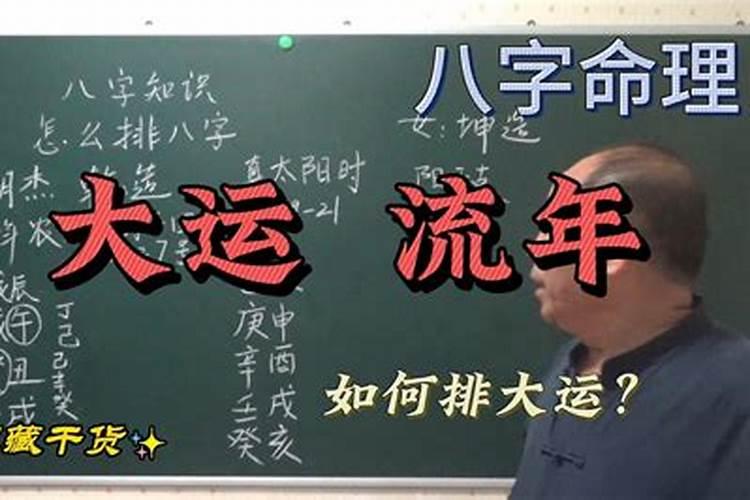 八字命理
八字知识
怎么排八字
女:坤造
真太阳时
大运 流年
农
7号
-21
辰
午
丁
己
丑
己
辛
癸
戌
庚申
辛酉
壬戌
癸亥
如何排大运?
藏干货